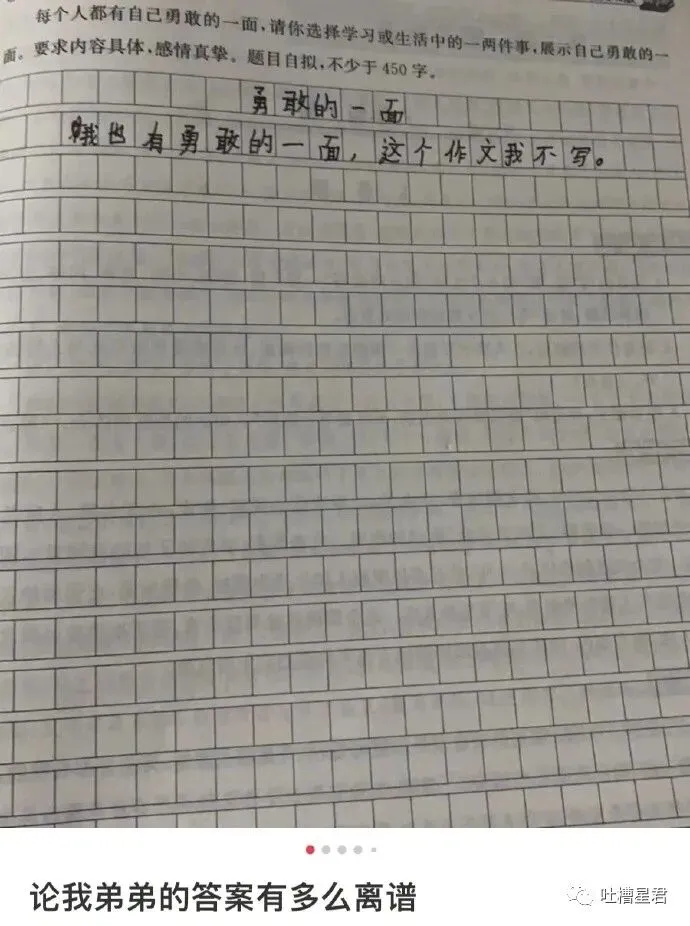 每个人都有自己勇敢的一面,请你选择学习或生活中的一两件事,展示自己勇敢的一
面。要求内容具体,感情真挚。题目自拟,不少于450字。
勇敢的一面
我也有勇敢的一面,这个作文我不写。
论我弟弟的答案有多么离谱
吐槽星君